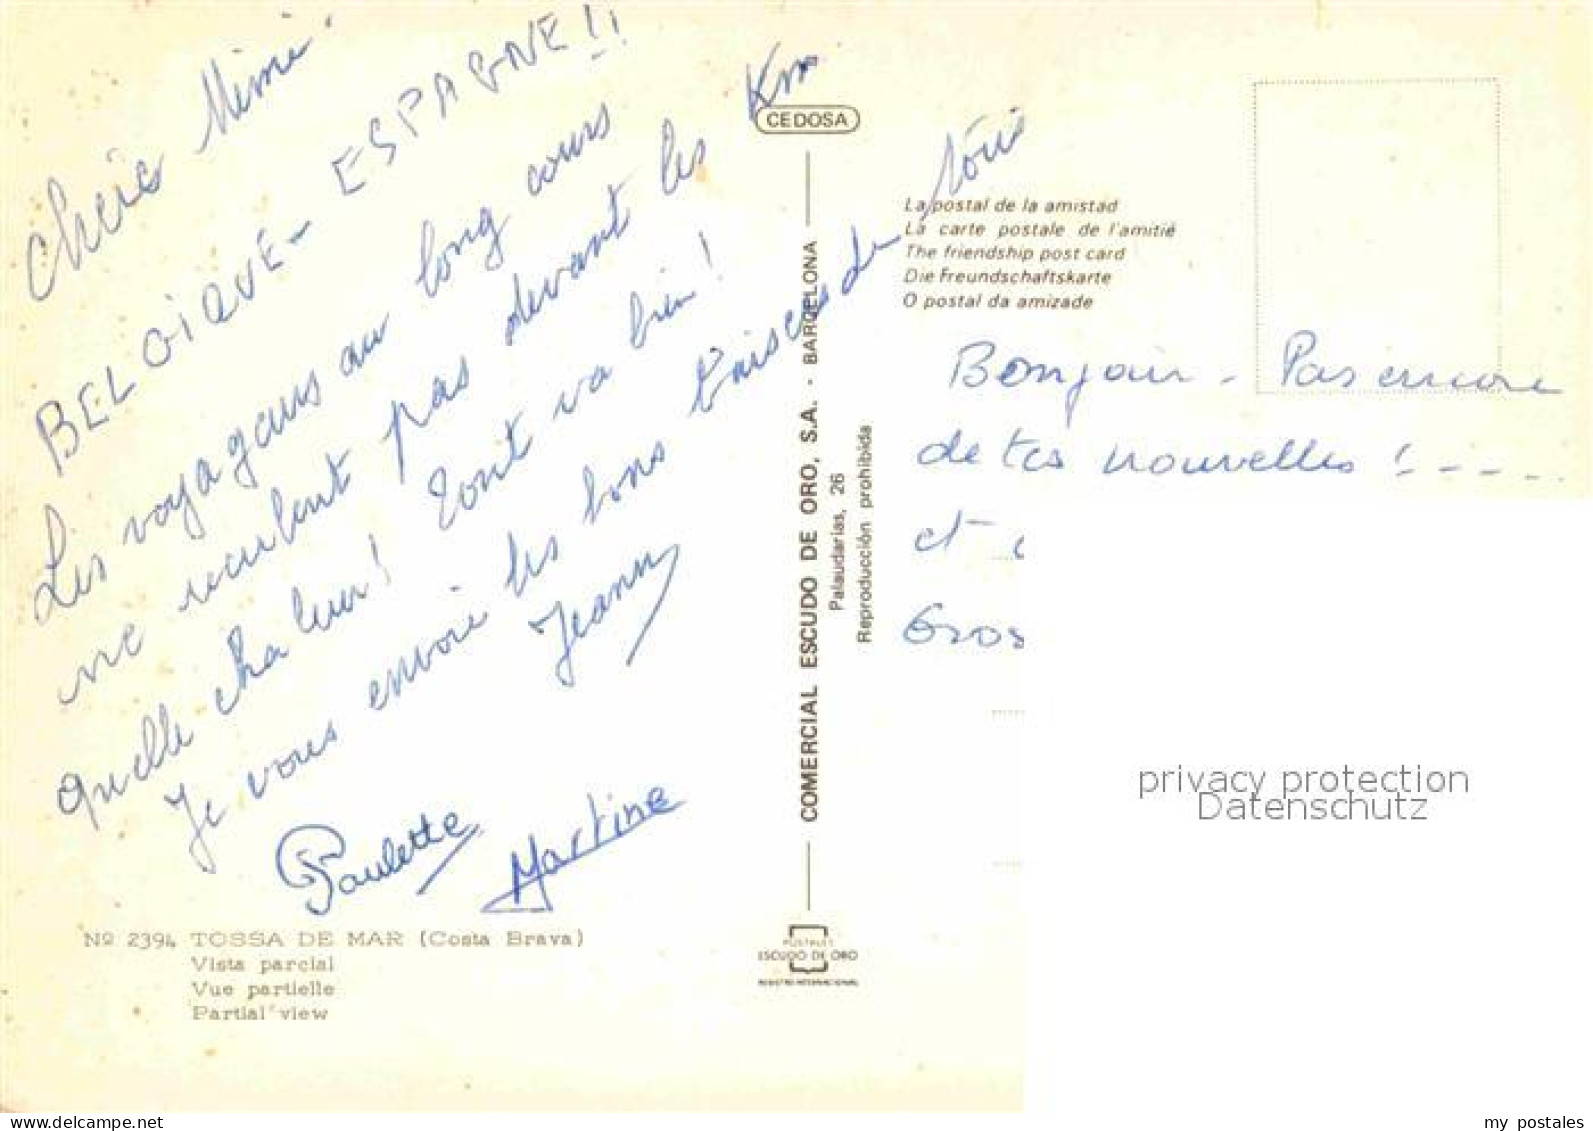 Chère Mimi
BELGIQUE - ESPAGNE !!
Les voyageurs au long cours
ne reculent pas devant les Km
quelle chaleur ! Tout va bien !
Je vous envoie les bons baisers de
Jeanny
Paulette
Martine
Nº 2394 TOSSA DE MAR (Costa Brava)
Vista parcial
Vue partielle
Partial view
CEDOSA
COMERCIAL ESCUDO DE ORO, S.A. - BARCELONA
Palaudarias, 26
Reproducción prohibida
POSTALES
ESCUDO DE ORO
REGISTRO INTERNACIONAL
La postal de la amistad
La carte postale de l'amitié
The friendship post card
Die Freundschaftskarte
O postal da amizade
Bonjour - Pas encore
de tes nouvelles ! - - - -
et
Gros
privacy protection
Datenschutz
my postales